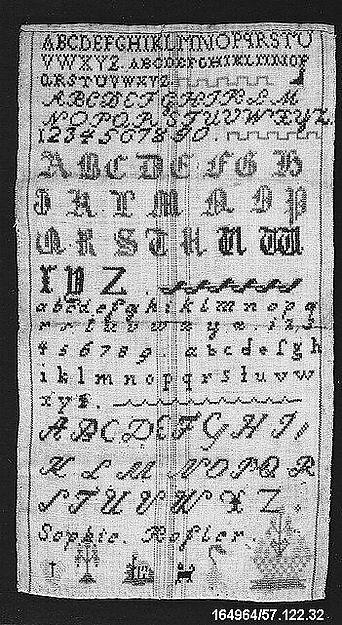 ABCDEFGHIKLMNOPQRSTU
VWXYZ. ABCDEFGHIKLMNOP
QRSTUVWXYZ
ABCDEFGHIKLM
NOPQRSTUVWXYZ
1234567890.
ABCDEFGH
IKLMNOP
QRSTUVW
XYZ.
abcdefghiklmnopq
rstuvwxyz. 123
456789. abcdefgh
iklmnopqrstuvw
xyz.
ABCDEFGHI
KLMNOPQR
STUVWXZ.
Sophie. Rosler.
164964/57.122.32